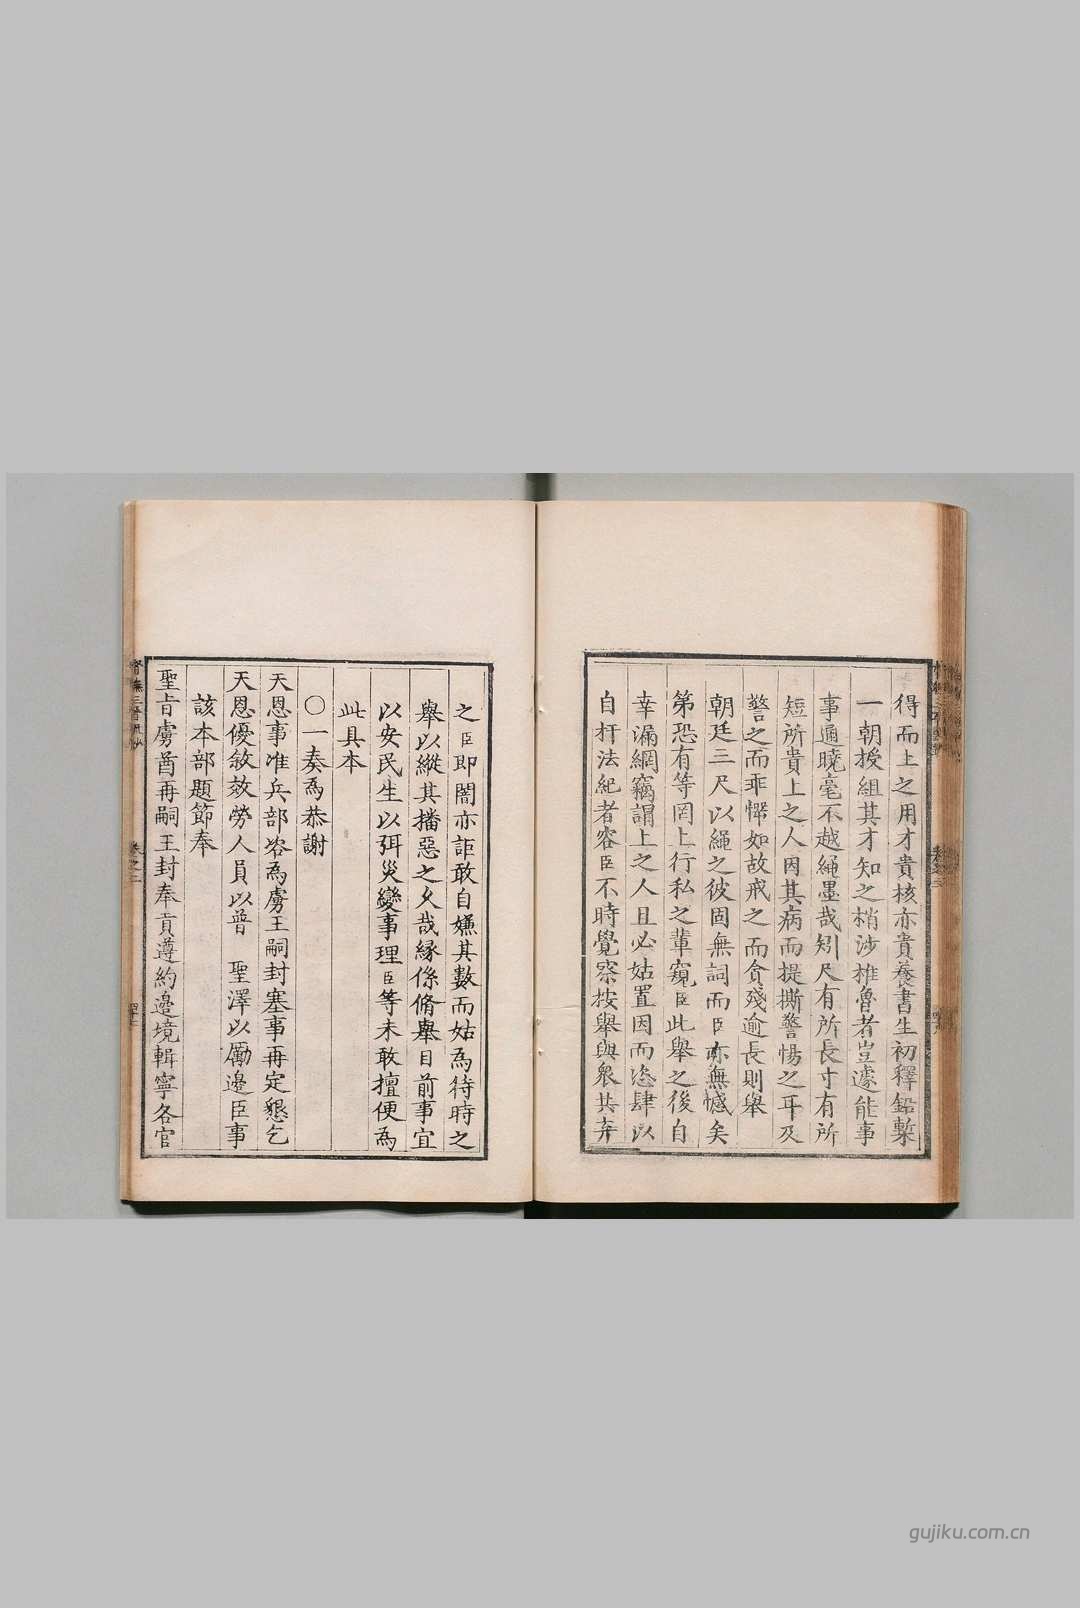 得而上之用才貴核亦貴養書生初釋鉛槧
一朝授組其才知之稍涉椎魯者豈遽能事
事通曉毫不越繩墨哉矧尺有所長寸有所
短所貴上之人因其病而提撕警惕之耳及
警之而乖憚如故戒之而貪殘逾長則舉
朝廷三尺以繩之彼固無詞而臣亦無憾矣
第恐有等罔上行私之輩窺臣此舉之後自
幸漏網竊謂上之人且必姑置因而恣肆以
自扞法紀者容臣不時覺察按舉與眾共弃
之臣即闇亦詎敢自嫌其數而姑為待時之
舉以縱其播惡之久哉緣係脩舉目前事宜
以安民生以弭災變事理臣等未敢擅便為
此具本
〇一奏為恭謝
天恩事准兵部咨為虜王嗣封塞事再定懇乞
天恩優敘效勞人員以普 聖澤以勵邊臣事
該本部題節奉
聖旨虜酋再嗣王封奉貢遵約邊境輯寧各官
卷之二
gujiku.com.cn